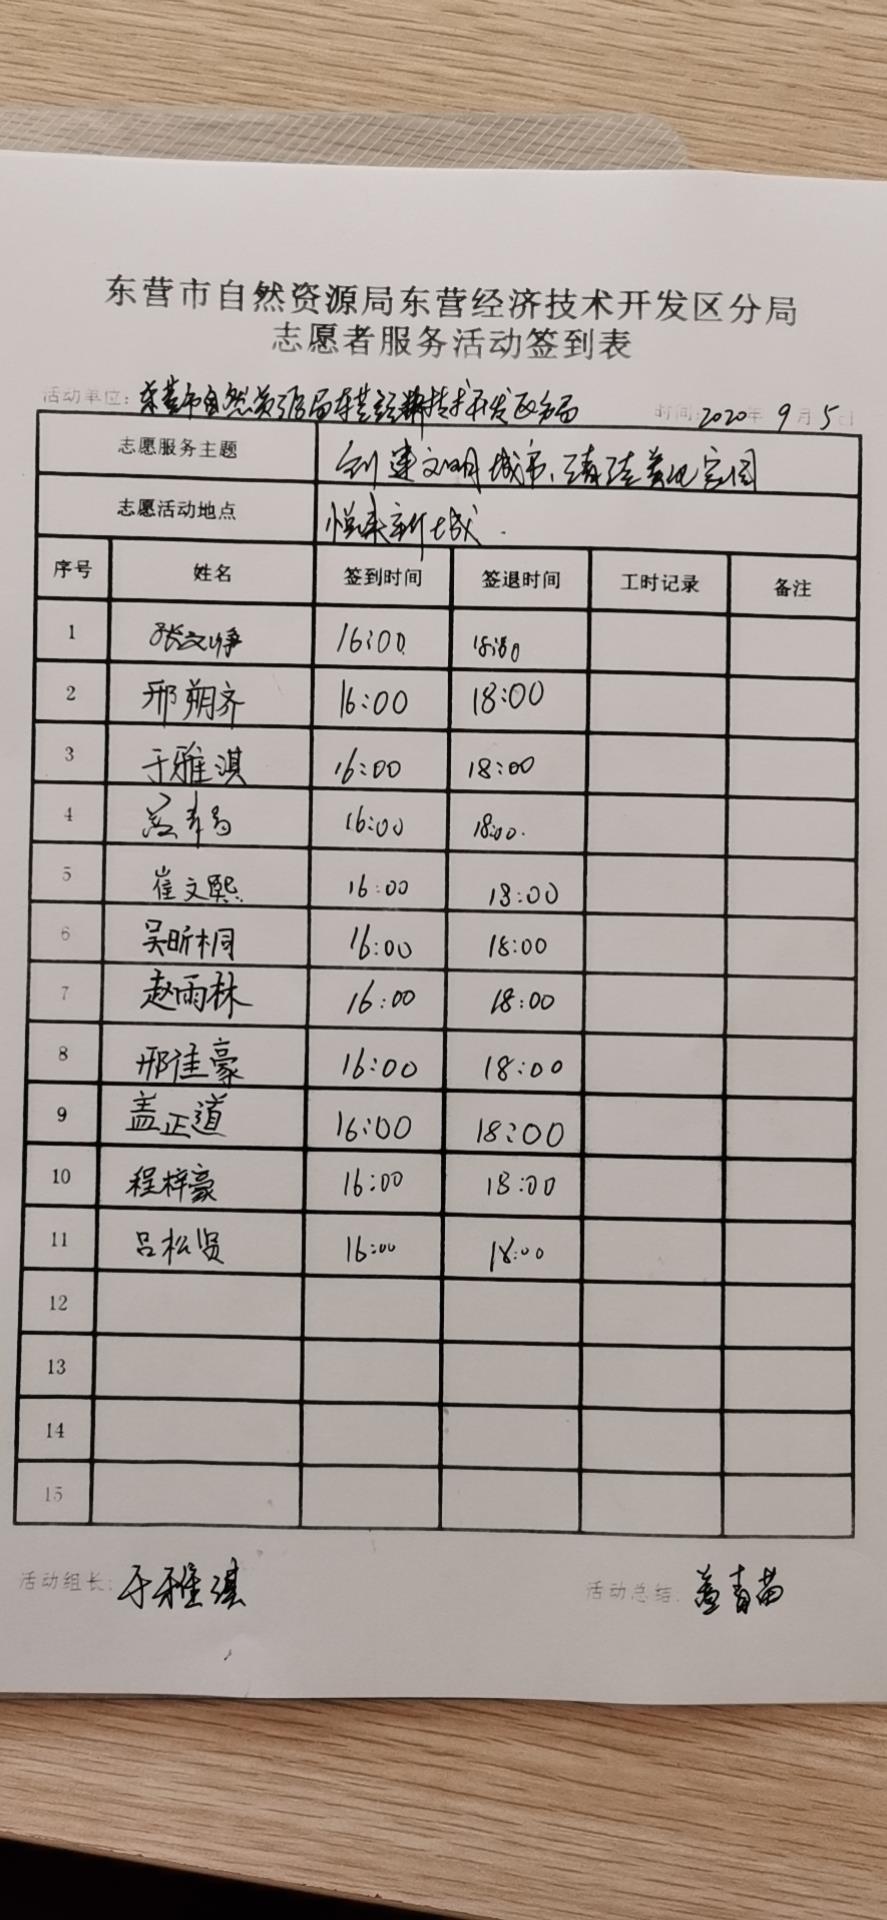 东营市自然资源局东营经济技术开发区分局
志愿者服务活动签到表
活动单位：东营市自然资源局东营经济技术开发区分局 时间：2020年9月5日
志愿服务主题 创建文明城市、清洁美化家园
志愿活动地点 悦来新城.
序号 姓名 签到时间 签退时间 工时记录 备注
1 张文峥 16:00 18:00
2 邢朔齐 16:00 18:00
3 于雅淇 16:00 18:00
4 盖青苗 16:00 18:00.
5 崔文熙 16:00 18:00
6 吴昕桐 16:00 18:00
7 赵雨林 16:00 18:00
8 邢佳豪 16:00 18:00
9 盖正道 16:00 18:00
10 程梓豪 16:00 18:00
11 吕松贤 16:00 18:00
12
13
14
15
活动组长：于雅淇 活动总结：盖青苗